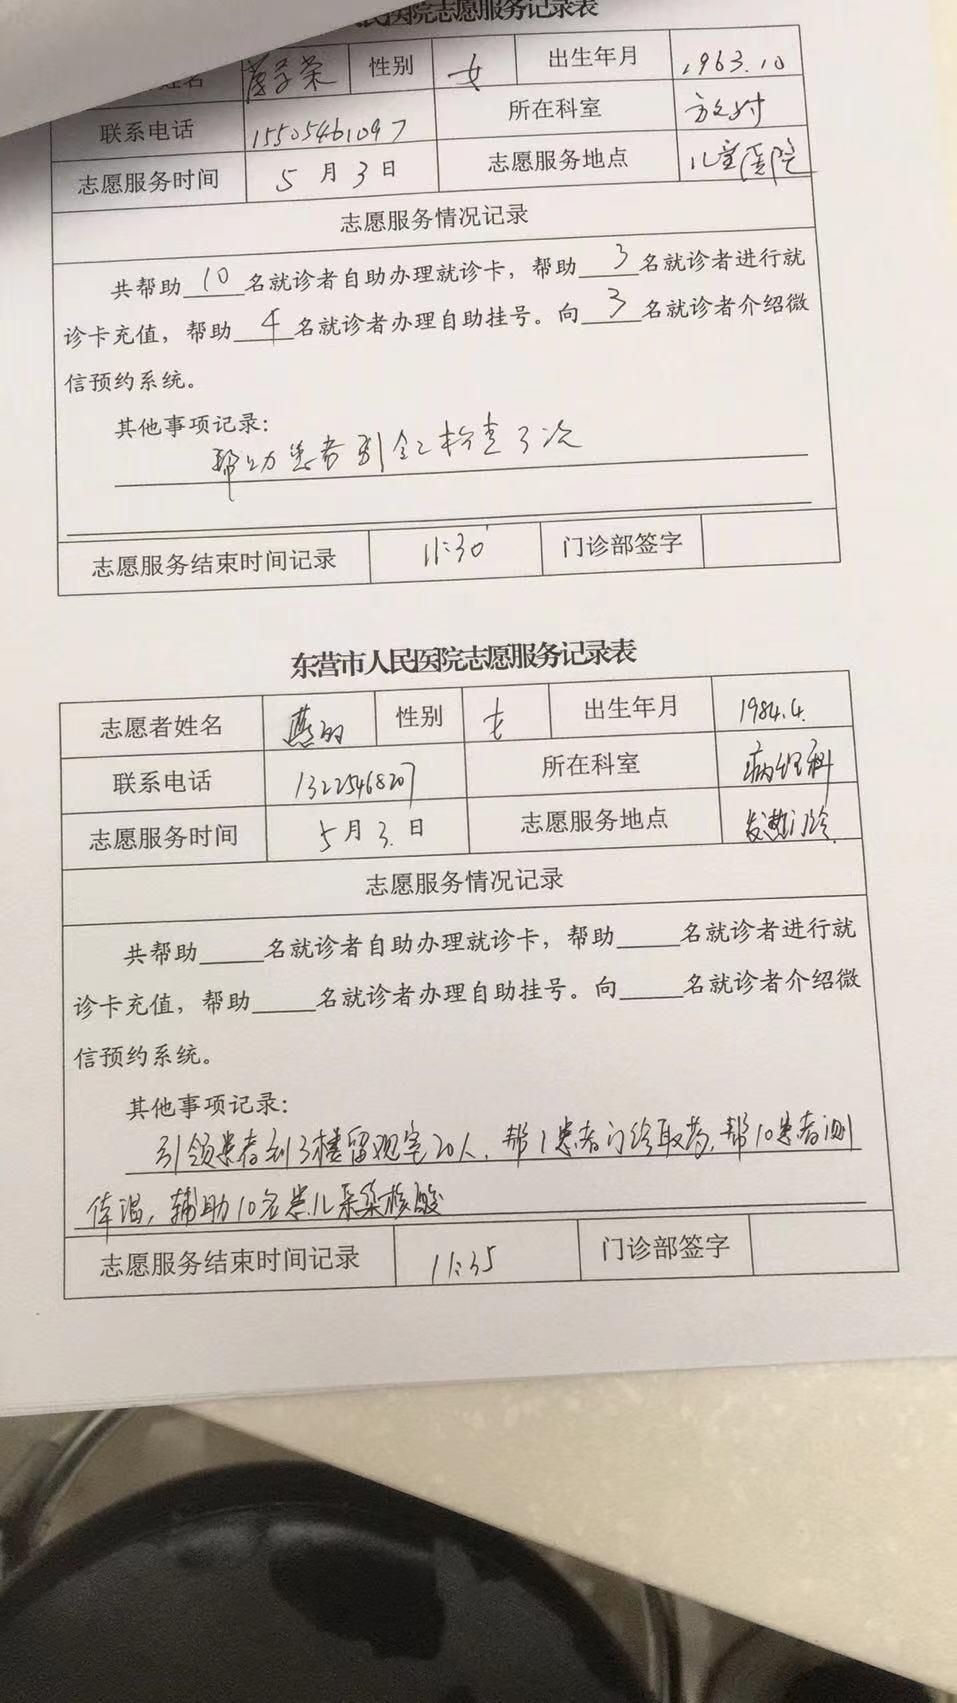 民医院志愿服务记录表
性别 女 出生年月 1963.10
联系电话 15505461097 所在科室 放射
志愿服务时间 5月3日 志愿服务地点 儿童医院
志愿服务情况记录
共帮助10名就诊者自助办理就诊卡，帮助3名就诊者进行就
诊卡充值，帮助4名就诊者办理自助挂号。向3名就诊者介绍微
信预约系统。
其他事项记录：
帮助患者引领检查3次
志愿服务结束时间记录 11:30 门诊部签字
东营市人民医院志愿服务记录表
志愿者姓名 性别 女 出生年月 1984.4.
联系电话 13225468207 所在科室 病理科
志愿服务时间 5月3日 志愿服务地点 发热门诊
志愿服务情况记录
共帮助_____名就诊者自助办理就诊卡，帮助_____名就诊者进行就
诊卡充值，帮助_____名就诊者办理自助挂号。向_____名就诊者介绍微
信预约系统。
其他事项记录：
引领患者到3楼留观室20人，帮1患者门诊取药，帮10患者测
体温，辅助10名患儿采集核酸
志愿服务结束时间记录 11:35 门诊部签字